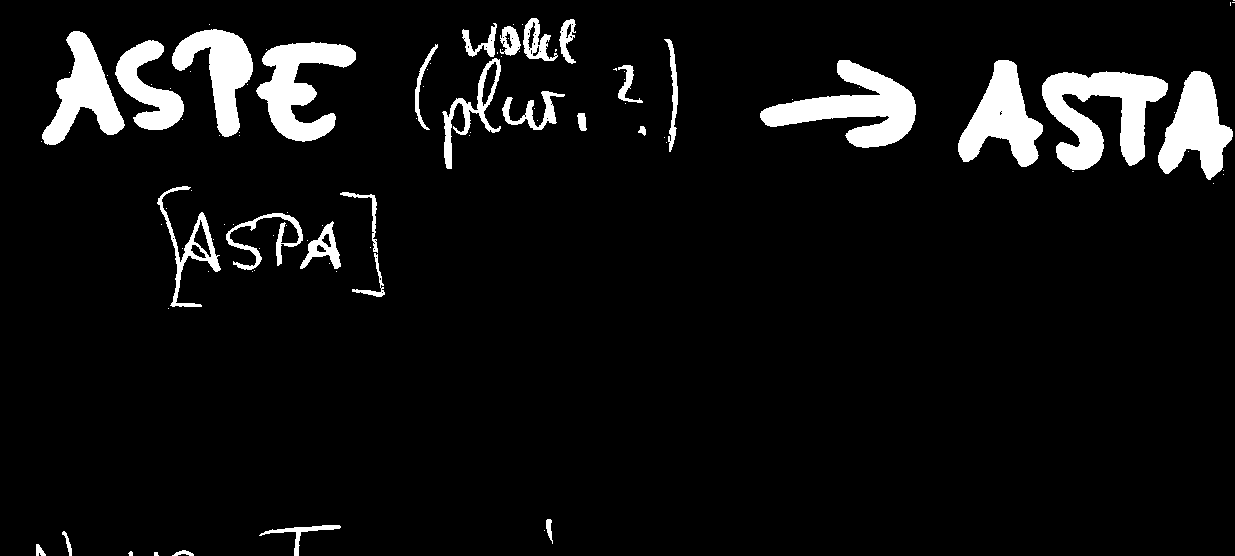 ASPE (wohl plur. ?) → ASTA
[ASPA]